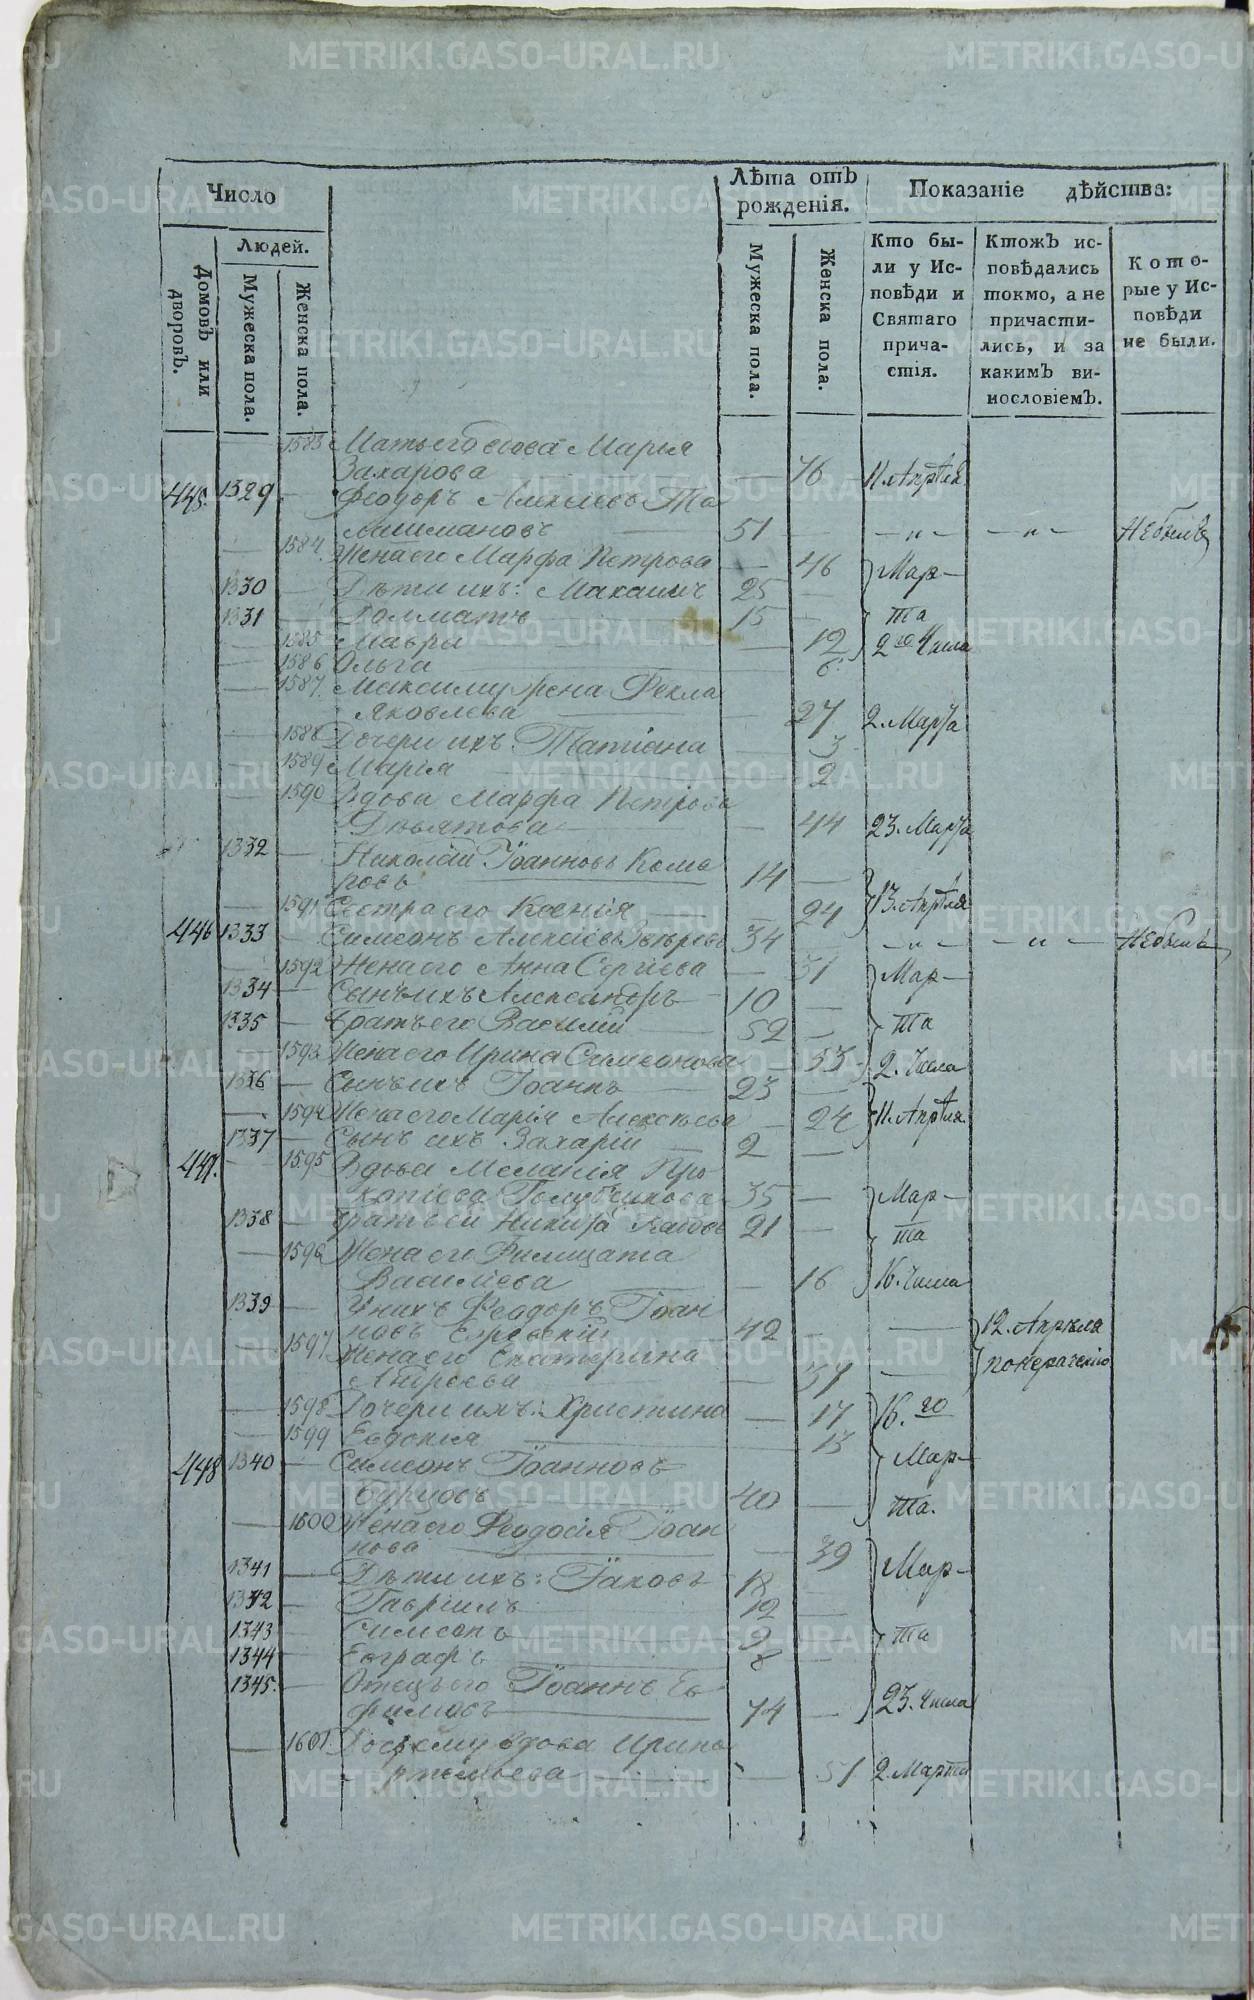 Число
Людей.
Домовъ или дворовъ.
Мужеска пола.
Женска пола.
Лѣта отъ рожденія.
Мужеска пола.
Женска пола.
Показаніе дѣйства:
Кто бы-
ли у Ис-
повѣди и
Святаго
прича-
стія.
Ктожъ ис-
повѣдались
токмо, а не
причасти-
лись, и за
какимъ ви-
нословіемъ.
Кото-
рые у Ис-
повѣди
не были.
1583 Мать его вдова Марья
Захарова — 76 11. Апрѣля
445. 1329 — Феодоръ Алексіевъ Та
лашмановъ 51 —"— —"— Небылъ
1584. Жена его Марфа Петрова — 46 Мар-
1330 — Дѣти ихъ: Максимъ 25 —
1331 — Долматъ 15 — та
1585 Мавра — 12 2го Числа
1586 Ольга 6.
1587. Максиму жена Фекла
Яковлева — 27 2. Марта
1588 Дочери ихъ: Татіана 3
1589 Марія 2
1590 Вдова Марфа Петрова
Девятова — 44 23. Марта
1332 — Николай Іоанновъ Кома
ровъ 14 —
1591 Сестра его Ксенія 24 13. Апрѣля
446 1333 — Симеонъ Алексіевъ 34 —"— —"— Небылъ
1592 Жена его Анна Сергіева — 31 Мар-
1334 — Сынъ ихъ Александръ 10 —
1335 — братъ его Василій 52 — та
1593 Жена его Ирина Симеонова — 53 2. Числа
1336 — Сынъ ихъ Іоаннъ 23 —
1594 Жена его Марія Алексѣева — 24 11. Апрѣля
1337 — Сынъ ихъ Захарій 2 —
447. — 1595 Вдова Меланія Про
копіева Голубчикова 35 — Мар-
1338 — братъ ей Никита 21 — та
1596 Жена его Филицата
Василіева — 16 16. Числа
1339 — У нихъ Феодоръ Іоан
новъ 42 — — 12. Апрѣля
1597 Жена его Екатерина
Андреева — 37 —
1598 Дочери ихъ: Христина — 17 16. го
1599 Евдокія 13
448 1340 — Симеонъ Іоанновъ Мар-
Бурцовъ 40 — та.
1600 Жена его Феодосія Іоан
нова — 39 Мар-
1341 — Дѣти ихъ: Іаковъ 18
1342 — Гавріилъ 12 —
1343 — Симеонъ 9 та
1344 — Евграфъ 8 —
1345. — Отецъ его Іоаннъ Ев
фимовъ 74 — 23. Числа
1601 вдова Ирина
— 51 2. Марта
METRIKI.GASO-URAL.RU